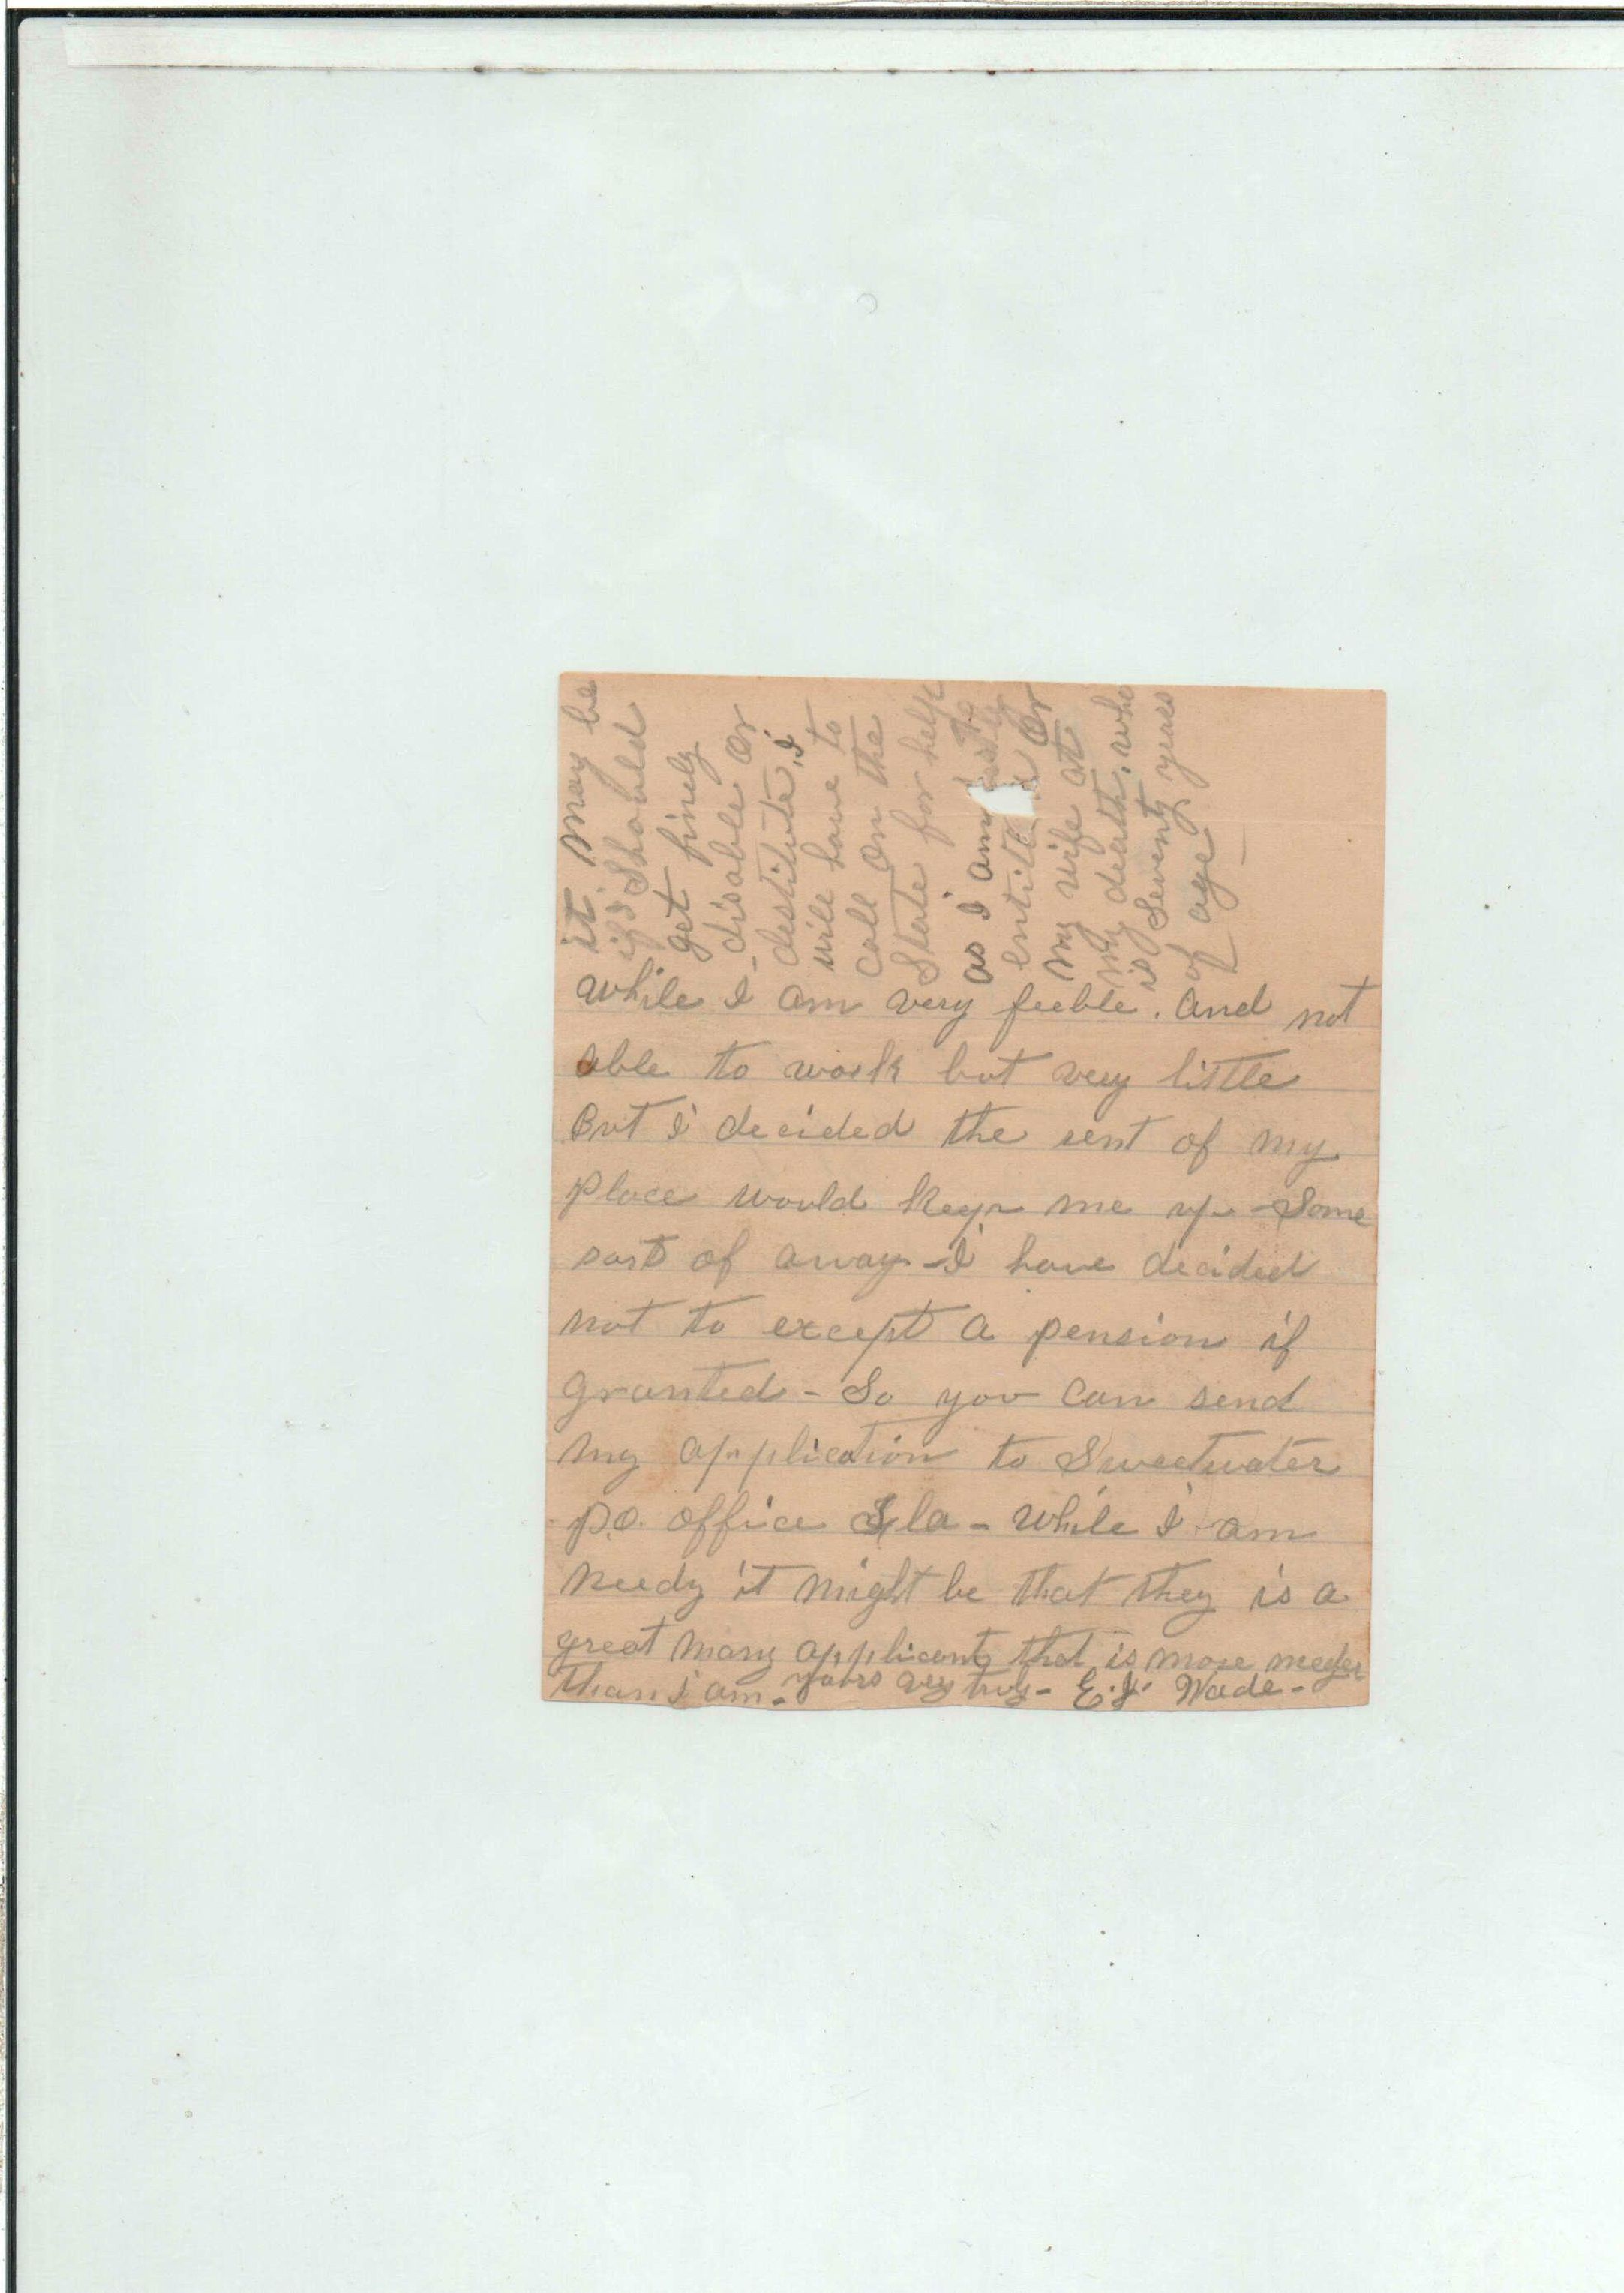 while I am very feeble. and not
able to work but very little
But I decided the rent of my
place would keep me up - Some
sort of away - I have decided
not to except a pension if
granted - So you can send
my application to Sweetwater
P.O. office Fla - while I am
needy it might be that they is a
great many applicants that is more
than I am - yours very truly - E. J. Wade -
it may be
if I Should
get finely
disable or
destitute, I
will have to
call on the
State for help
as I am
or
my wife at
my death, who
is Seventy years
of age -